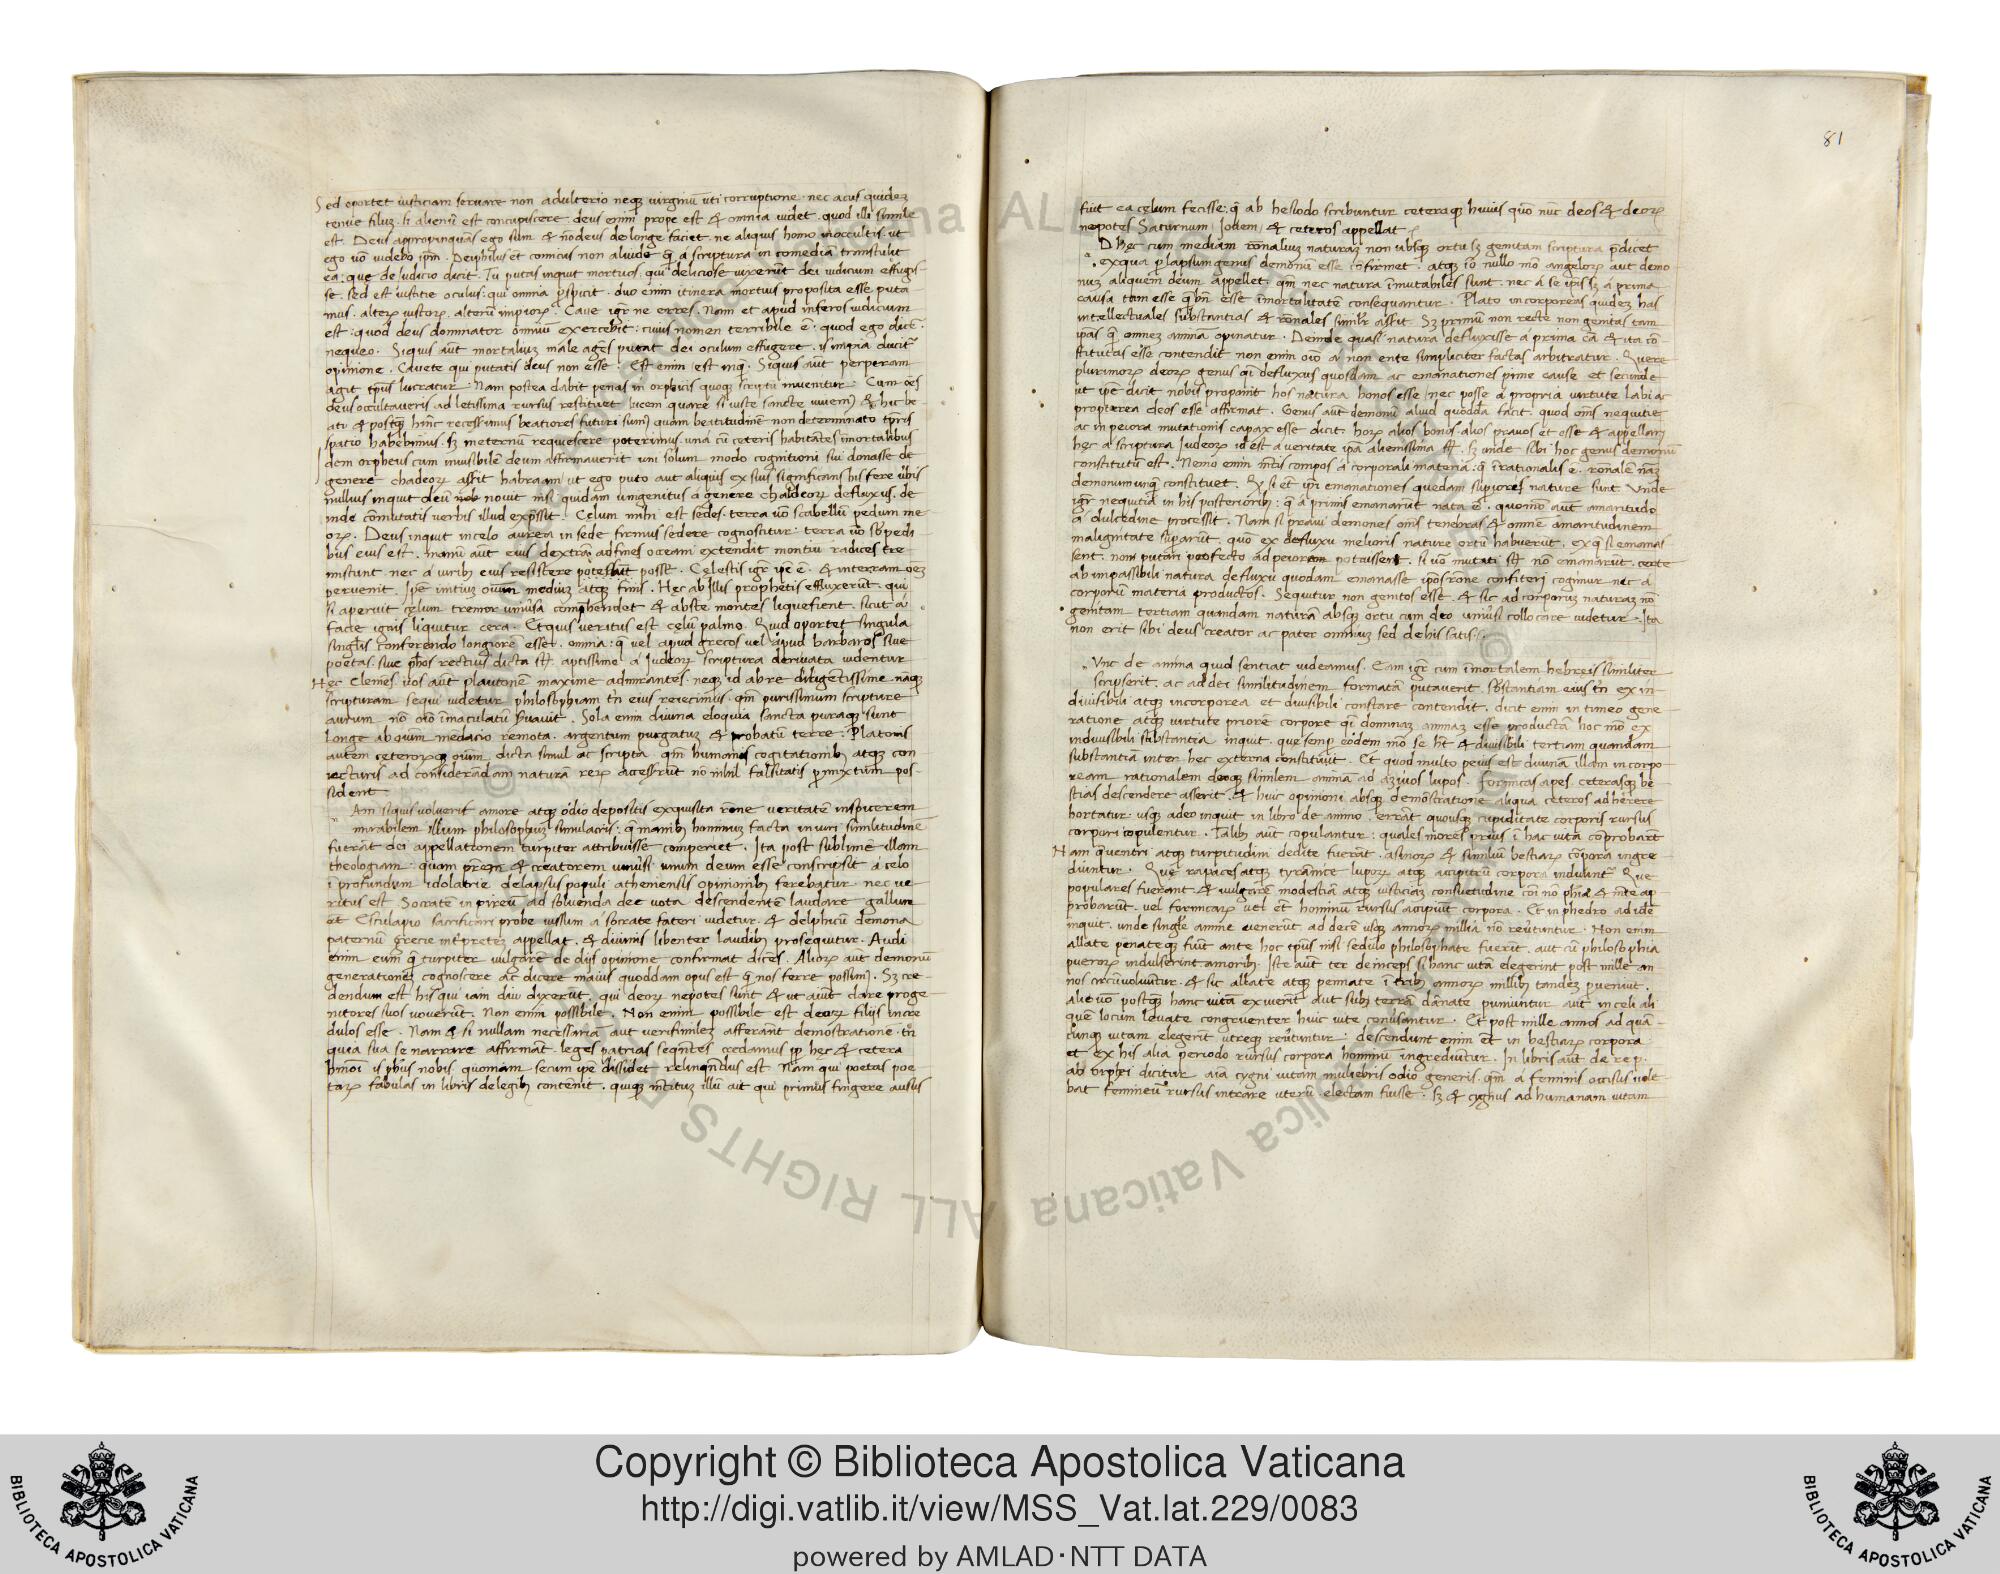 81
Sed oportet iusticiam servare non adulterio neqʒ virginū uti corruptione · nec acus quideʒ
tenue filuʒ · sʒ alienū est concupiscere deus enim prope est & omnia videt · quod illi simile
est · Deus appropinquās ego sum & nō deus de longe faciet · ne aliquis homo in occultis · ut
ego nō videbo ip̄m · Deiphilus et comicus non aliude q̄ a scriptura in comediā transtulit
ea: que de iudicio dicit · Tu putas inquit mortuos: qui deliciose vixerūt dei iudicium effugis-
se · sed est iustitie oculus: qui omnia p̄spicit · duo enim itinera mortuis proposita esse puta
mus · alterʒ iustorʒ · alterū impiorʒ · Cave igr̄ ne erres · Nam et apud inferos iudicium
est: quod deus dominator omniū exercebit: cuius nomen terribile ē · quod ego dicē
nequeo · Siquis aūt mortaliuʒ male agēs putat dei oculum effugere · is impia ducitr̄
opinione · Cavete qui putatis deus non esse · Est enim est inq̄ · Siquis aūt perperam
agit tp̄us lucratur · Nam postea dabit penas in orphicis quoqʒ scriptū invenitur · Cum oēs
deus occultaveris ad letissima rursus restituet lucem quare si iuste sancte &
hic be-
ati & postq̄ hinc recesserimus beatiores futuri sum⁹ quam beatitudinē non determinato tp̄ris
spatio habebimus · sʒ in eternū requiescere poterimus · una cū ceteris habitātes īmortalibus
Idem orpheus cum invisibilē deum affirmaverit uni solum modo cognitioni sui donasse de
genere chadeorʒ assit habraam ut ego puto aut aliquis ex suis significans his fere v̄bis
nullius inquit deū novit nisi quidam unigenitus a genere chaldeorʒ defluxus · de
inde cōmutatis verbis illud exp̄ssit · Celum mihi est sedes · terra vō scabellū pedum me
orʒ · Deus inquit in celo aurea in sede firmus sedere cognoscitur · terra vō sb̄ pedi
bus eius est · manū aut eius dextrā ad fines oceani extendit montiū radices tre
miscunt · nec a virib⁹ eius resistere potestaūt posse · Celestis igr̄ ip̄e ē · & integram oēʒ
pervenit · Ip̄e initiuʒ oīum mediuʒ atqʒ finis · Hec ab illis prophetis effluxerūt · qui
si aperuit celum tremor univ̄sa comp̄hendet & abste montes liquefient · sicut a
facie ignis liquitur cera · Et quis veritus est celū palmo · Quid oportet singula
singul̄s conferendo longiorē esse · omnia: q̄ vel apud grecos vel apud barbaros sive
poetas · sive ph̄os rectius dicta st̄ · aptissime a Iudeorʒ scriptura derivata videntur
Hec Clemēs · vos aūt plautonē maxime admirantes · neqʒ id abre diligetissime nāqʒ
scripturam sequi videtur philosophiam tn̄ eius reiecimus · qm̄ purissimum scripture
aurum nō oīo īmaculatū s̄vavit · Sola enim divina eloquia sancta puraqʒ sunt
longe ab oīum mēdacio remota · argentum purgatuʒ & probatū terre: Platonis
autem ceterorʒqʒ oīum dicta simul ac scripta · qm̄ humanis cogitationib⁹ atqʒ con
iecturis ad considerādam naturā rerʒ accesserūt nō nihil falsitatis p̄mixtum pos-
sident ·
Am siquis voluerit amore atqʒ odio depositis exquisita rōne veritatē inspicerem
mirabilem illum philosophuʒ simulacris: q̄ manib⁹ hominuʒ facta in viri similitudinē
fuerāt dei appellationem turpiter attribuisse comperiet · Ita post sublimē illam
theologiam: quam p̄rem & creatorem univ̄si unum deum esse conscripsit a celo
ī profundum idolatrie delapsus populi atheniensis opinionib⁹ ferebatur · nec ve
ritus est Socratē in pireū ad solvenda dee vota descendentē laudare gallum
at Esculapio sacrificari probe iussum a socrate fateri videtur · & delphicū demona
paternū grecie int̄pretēʒ appellat · & divinis libenter laudib⁹ prosequitur · Audi
enim eum q̄ turpiter vulgarē de dijs opinione confirmat dicēs · Aliorʒ aūt demonū
generationēʒ cognoscere ac dicere maius quoddam opus est q̄ nos ferre possim⁹ · Sʒ cre-
dendum est his qui iam diu dixerūt · qui deorʒ nepotes sūnt & ut aiūt clare proge
nitores suos noverūt · Non enim possibile · Non enim possibile est deorʒ filijs incre
dulos esse · Nam & si nullam necēssaria aut verisimileʒ afferānt demōstratione · tn̄
quia sua se narrare affirmāt · leges patrias seqn̄tes credamus ip̄ hęc & cetera
hm̄oi is v̄bis nobis quoniam secum ip̄e dissidet relinqn̄dus est · Nam qui poetas poe
tarʒ fabulas in libris de legib⁹ contēnit · quiqʒ mētituʒ illū ait qui primus fingere ausus
fuit ea cęlum fecisse: q̄ ab hesiodo scribuntur ceteraqʒ huius quō nūc deos & deorʒ
nepotes Saturnum Iovem & ceteros appellat ·
D Hęc cum mediam rōnaliuʒ naturaʒ non absqʒ ortu sʒ genitam scriptura p̄dicet
ex qua p̄ lapsum genus demonū esse cōfirmet · atqʒ iō nullo mō angelorʒ aut demo
nuʒ aliquem deum appellet · qm̄ nec natura īmutabiles sunt · nec a se ip̄is sʒ a prima
causa tam esse q̄ bn̄ esse īmortalitatē consequantur · Plato incorporeas quidēʒ has
intellectuales substantias & rōnales simil̄r assit · Sʒ primū non recte non genitas tam
ip̄as q̄ omneʒ animā opinatur · Deinde quasi natura defluxisse a prima cā & ita cō-
stitutas esse contendit non enim oīo a non ente simpliciter factas arbitratur · Quere
plurimorʒ deorʒ genus q̄i defluxus quosdam ac emanationes prime cause et secunde
ut ip̄e dicit nobis proponit hos natura bonos esse nec posse a propria virtute labi ac
propterea deos esse affirmat · Genus aūt demonū aliud quoddā facit · quod om̄s nequitie
ac in peiora mutationis capax esse dicit · horʒ alios bonos · alios pravos et esse & appellari
hęc a scriptura Iudeorʒ id est a veritate ip̄a alienissima st̄ · sʒ unde sibi hoc genus demonū
constitutū est · Nemo enim mētis compos a corporali materia: q̄ īrationalis ē · rōnalē nāʒ
demonum unq̄ constituet · Q si et ip̄i emanationes quedam superiores nature sunt · Unde
igr̄ nequitia in his posteriorib⁹: q̄ a primis emanarūt nata ē · quomō aut amaritudo
a dulcedine processit · Nam si pravi demones om̄s tenebras & omnē amaritudinem
malignitate supārūt · quo ex defluxu melioris nature ortū habuerūt · ex q̄ si emanas
sent · non putari profecto ad peioram potuissent · si vō mutati st̄ nō emanarūt · certe
ab impassibili natura defluxu quodam emanasse ip̄os rōne confiteri cogimur nec a
corporū materia productos · Sequitur non genitos esse · & sic ad corporuʒ naturaʒ nō
genitam tertiam quandam naturā absqʒ ortu cum deo univ̄si collocare videtur · Ita
non erit sibi deus creator ac pater omniuʒ sed de his satis ·
Unc de anima quid sentiat videamus · Eam igr̄ cum īmortalem hebreis similiter
scripserit · ac ad dei similitudinem formatā putaverit sb̄stantiam eius tn̄ ex in-
divisibili atqʒ incorporea et divisibili constare contendit · dicit enim in timeo gene
ratione atqʒ virtute priorē corpore q̄i dominaʒ animaʒ esse productā hoc mō ex
indivisibili substantia inquit · que semp̄ eōdem mō se h̄t & divisibili tertiam quandam
substantiā inter hec externa constituit · Et quod multo peius est divinā illam incorpo
ream rationalem deoqʒ similem animā ad asinos lupos · formicas apes · ceterasqʒ be
stias descendere asserit · & huic opinioni absqʒ demōstratione aliqua ceteros adhērere
hortatur · usqʒ adeo inquit in libro de animo · errāt quousqʒ cupiditate corporis rursus
corpori copulentur · Talib⁹ aūt copulantur: quales mores prius ī hac vita cōprobarūt
Nam q̄ ventri atqʒ turpitudini dedite fuerāt · asinorʒ & similiū bestiarʒ cōrpora ingre-
diuntur · Quę rapaces atqʒ tyrānice luporʒ atqʒ accipitrū corpora induūnt⁹ Que
populares fuerant & vulgarē modestiā atqʒ iusticiaʒ consuetudine cōī nō ph̄ia & mēte ap
probarūt · vel formicarʒ vel et hominū rursus accipiūt corpora · Et in phedro ad idē
inquit · unde singul̄e anime venerūt · ad decē usqʒ annorʒ millia nō rev̄tuntur · Non enim
allate penateqʒ fiūt ante hoc tp̄us nisi sedulo philosophate fuerīt · aut cū philosophia
puerorʒ indulserint amorib⁹ · Iste aūt ter deinceps si hanc vitā elegerint post mille an
nos circūvoluūtur · & sic allate atqʒ pennate ī trib⁹ annorʒ millib⁹ tandeʒ p̄veniūt ·
alie vō postq̄ hanc vitā exuerīt aut sub terrā dānate puniuntur aut in celi ali
quē locum levate congruenter huic vite conv̄santur · Et post mille annos ad quā-
cūnqʒ vitam elegerīt utreqʒ rev̄tuntur · descendunt enim et in bestiarʒ corpora
et ex his alia periodo rursus corpora hominū ingrediuntur · In libris aūt de re p ·
ab orphei dicitur aīa cygni vitam muliebris odio generis · qm̄ a feminis occisus nole-
bat femineū rursus intrare uterū · electam fuisse · sʒ & cyghus ad humanam vitam
© Biblioteca Apostolica Vaticana ALL RIGHTS RESERVED
Copyright © Biblioteca Apostolica Vaticana
http://digi.vatlib.it/view/MSS_Vat.lat.229/0083
powered by AMLAD·NTT DATA
BIBLIOTECA APOSTOLICA VATICANA
BIBLIOTECA APOSTOLICA VATICANA